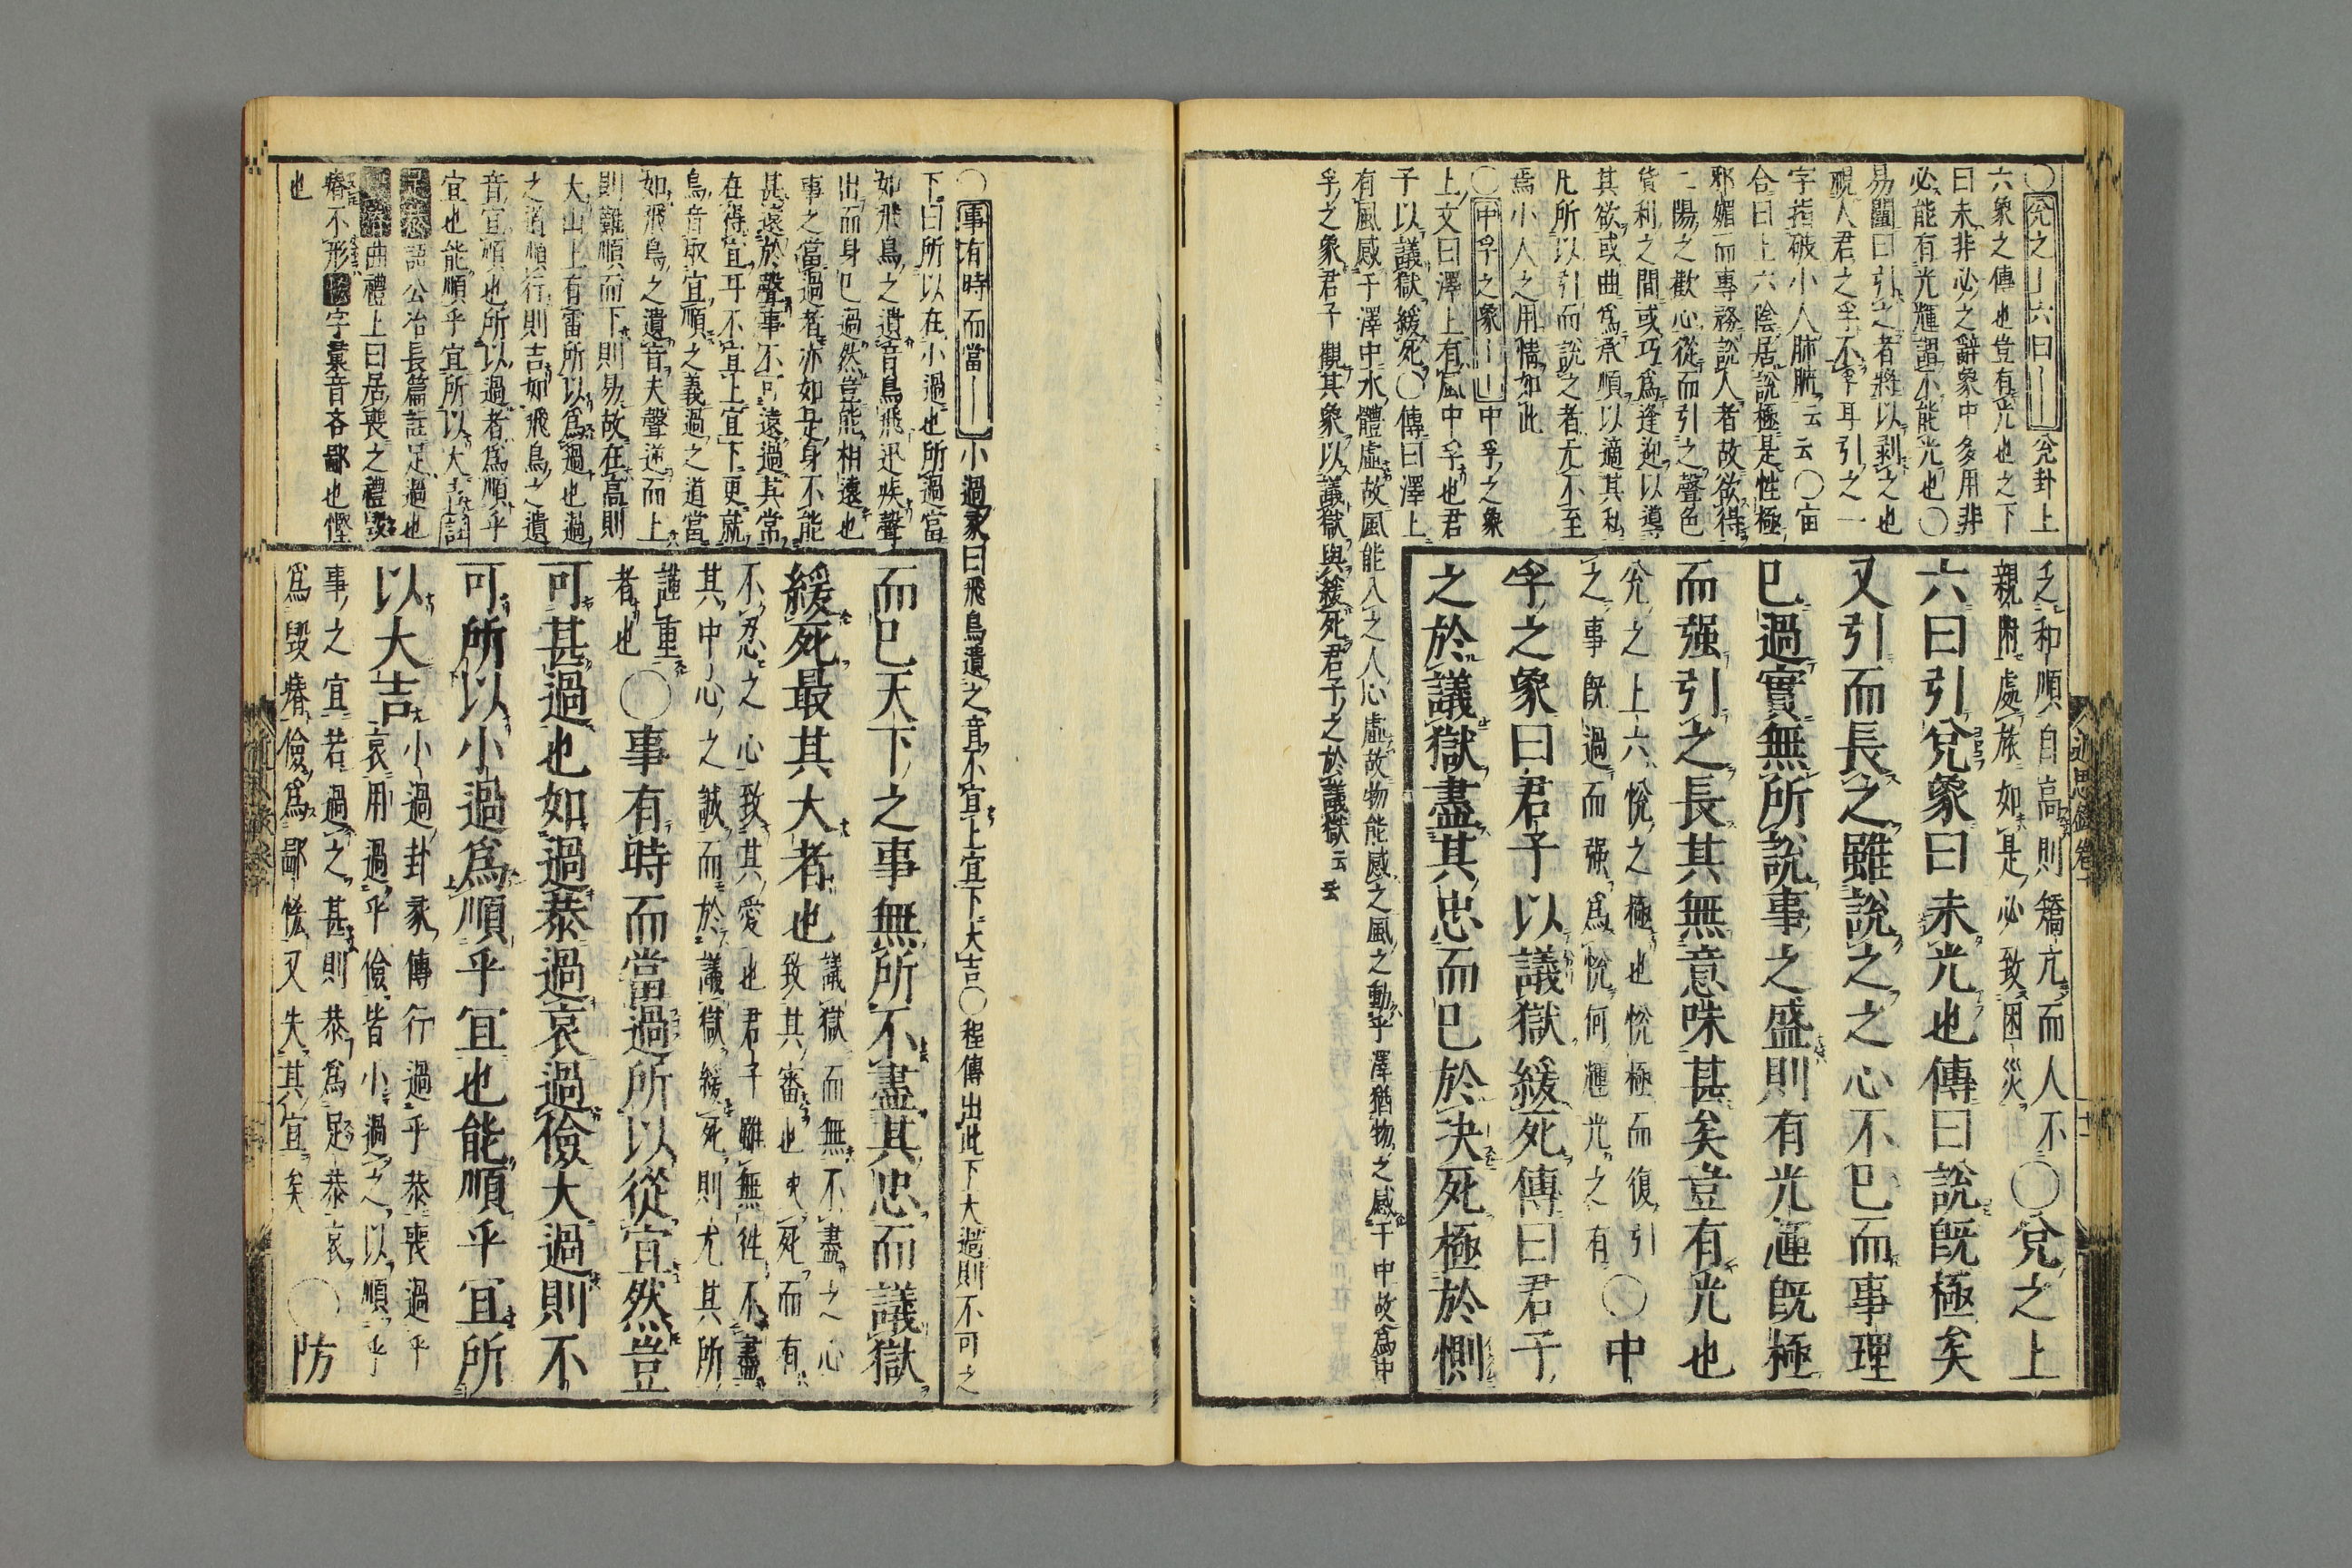 ○兌之上六曰――兌卦上
六象之傳也豈有光也之下
曰未非必之辭象中多用非
必能有光輝謂不能光也○
易闡曰引之者將以剥之也
覗人君之孚不孚耳引之一
字指破小人肺腑云云○宙
合曰上六陰居說極是性極
邪媚而專務說人者故欲得
二陽之歡心從而引之聲色
貨利之間或巧爲逢迎以導
其欲或曲爲承順以適其私
凡所以引而說之者尤不至
焉小人之用情如此
○中孚之象――中孚之象
上文曰澤上有風中孚也君
子以議獄緩死○傳曰澤上
有風感于澤中水體虛故風能入之人心虛故物能感之風之動乎澤猶物之感于中故爲中
孚之象君子觀其象以議獄與緩死君子之於議獄云云
之和順自高則矯亢而人不
親附處旅如是必致困災
○兌之上
六曰引兌象曰未光也傳曰說既極矣
又引而長之雖說之之心不已而事理
已過實無所說事之盛則有光輝既極
而强引之長其無意味甚矣豈有光也
兌之上六悅之極也悅極而復引
之事既過而强爲悅何輝光之有
○中
孚之象曰君子以議獄緩死傳曰君子
之於議獄盡其忠而已於決死極於惻
近思錄卷
○事有時而當――小過彖曰飛鳥遺之音不宜上宜下大吉○程傳出此下大過則不可之
下曰所以在小過也所過當
如飛鳥之遺音鳥飛迅疾聲
出而身已過然豈能相遠也
事之當過者亦如是身不能
甚遠於聲事不可遠過其常
在得宜耳不宜上宜下更就
鳥音取宜順之義過之道當
如飛鳥之遺音夫聲逆而上
則難順而下則易故在高則
大山上有雷所以爲過也過
之道順行則吉如飛鳥之遺
音宜順也所以過者爲順乎
宜也能順乎宜所以大吉註
語公冶長篇註足過也
曲禮上曰居喪之禮毀
瘠不形字彙音吝鄙也慳
也
而已天下之事無所不盡其忠而議獄
緩死最其大者也
議獄而無不盡之心
致其審也決死而有
不忍之心致其愛也君子雖無往不盡
其中心之誠而於議獄緩死則尤其所
謹重
者也
○事有時而當過所以從宜然豈
可甚過也如過恭過哀過儉大過則不
可所以小過爲順乎宜也能順乎宜所
以大吉
小過卦彖傳行過乎恭喪過乎
哀用過乎儉皆小過之以順乎
事之宜若過之甚則恭爲足恭哀
爲毀瘠儉爲鄙悋又失其宜矣
○防